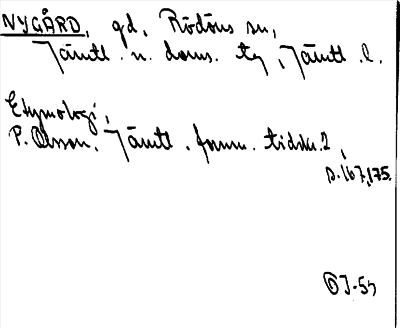 NYGÅRD, gd, Rödöns sn,
Jämtl. n. doms. tg, Jämtl. l.
Etymologi,
P. Olsson, Jämtl. fornm. tidskr. 2,
s. 167, 175.